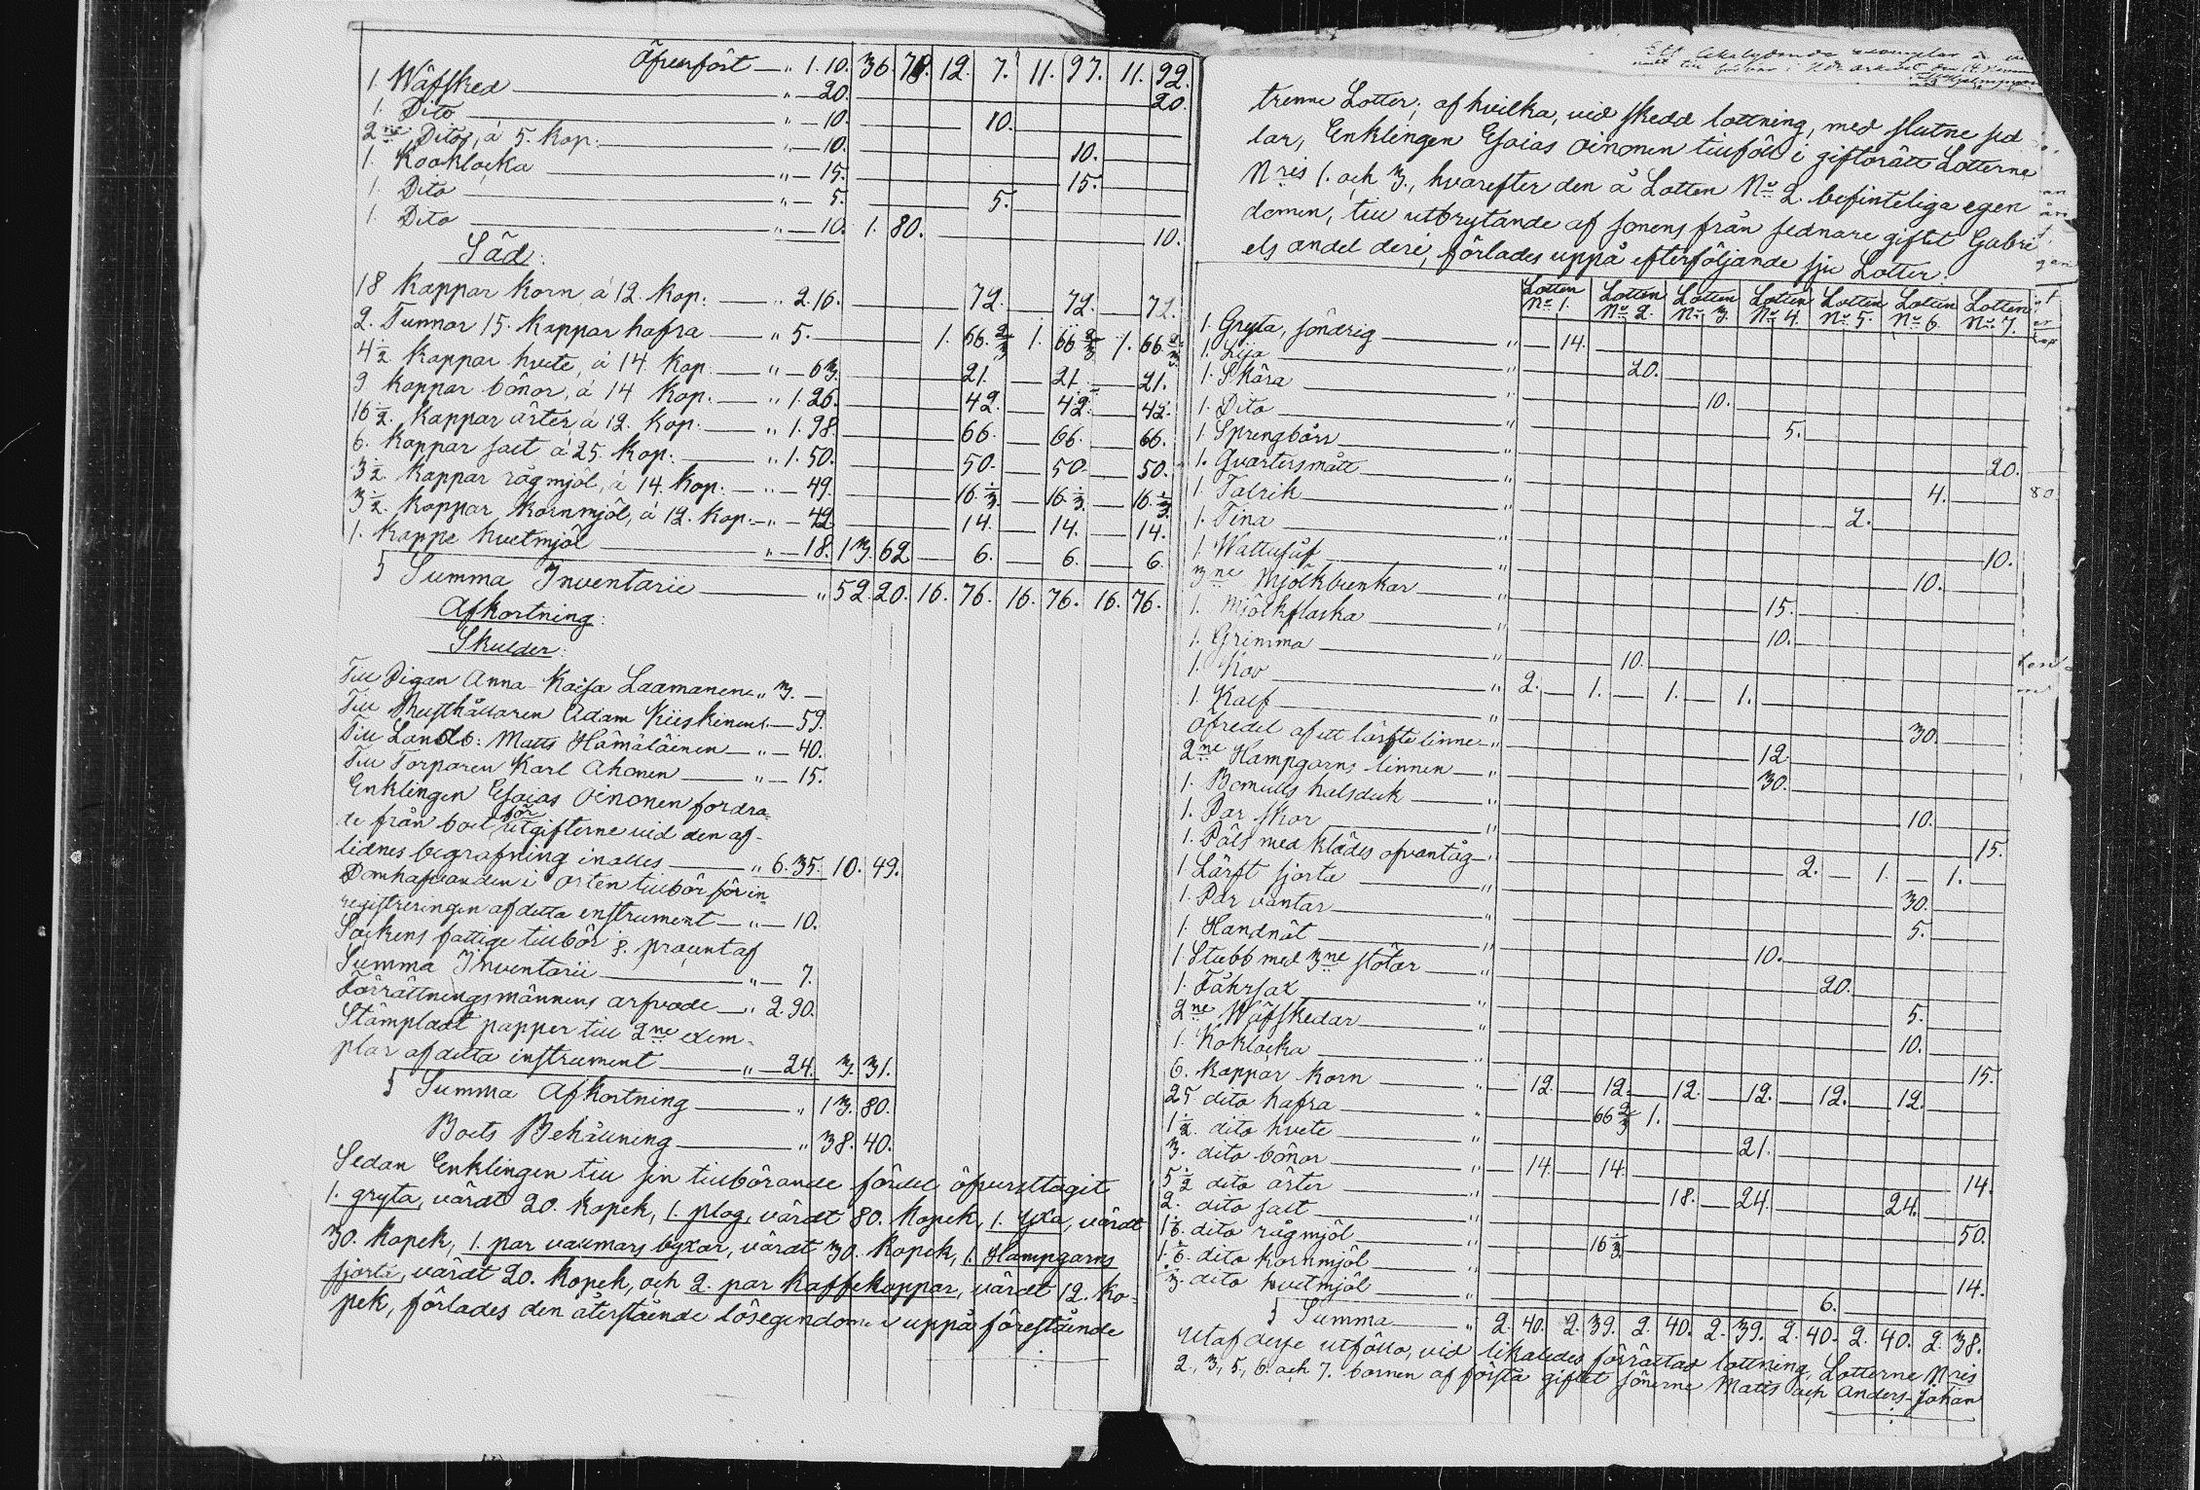 Öfverfört — „ 1.10. 36. 78. 12. 7. 11. 97. 11. 92.
1. Wäfsked — „ — 20. 20.
1. Dito — „ — 10. 10.
2ne Ditos, á 5. Kop. — „ — 10. 10.
1. Kooklocka — „ — 15. 15.
1. Dito — „ — 5. 5.
1. Dito — „ — 10. 1. 80. 10.
Säd:
18 Kappar Korn, á 12. Kop: — „ 2.16. 72. 72. 72.
2. Tunnor 15. Kappar hafra — „ 5. 1. 66.2/3 1. 66 2/3 1. 66 2/3
4 1/2 Kappar hvete, á 14. Kop. — „ — 63. 21. 21. 21.
9 Kappar bönor, á 14 Kop. — „ 1.26. 42. 42. 42.
16 1/2. Kappar ärter á 12. Kop. — „ 1.98. 66. 66. 66.
6. Kappar salt á 25. Kop. — „ 1.50. 50. 50. 50.
3 1/2 Kappar rågmjöl, á 14. Kop: — „ — 49. 16.1/3. 16.1/3. 16.1/3
3 1/2. Kappar Kornmjöl, á 12. Kop. — „ — 42. 14. 14. 14.
1. Kappe hvetmjöl — „ — 18. 13. 62 6. 6. 6.
§ Summa Inventarie — „ 52. 20. 16. 76. 16. 76. 16. 76.
Afkortning:
Skulder:
Till Pigan Anna Kaisa Laamanen „ 3. —
Till Rusthållaren Adam Kiiskinen „ — 59.
Till Landb: Matts Hämäläinen — „ — 40.
Till Torparen Karl Ahonen — „ — 15.
Enklingen Esaias Oinonen fordra-
de från boet för utgifterne vid den af-
lidnes begrafning inalles — „ 6.35. 10. 49.
Domhafvanden i Orten tillbör för in-
registreringen af detta instrument — „ — 10.
Sockens fattige tillbör procent af
Summa Inventarii — „ — 7.
Förrättningsmännens arfvode — „ 2.90.
Stämpladt papper till 2ne exem-
plar af detta instrument — „ — 24. 3. 31.
§ Summa Afkortning — „ 13. 80.
Boets Behållning — „ 38. 40.
Sedan Enklingen till sin tillbörande fördel öfverstagit
1. gryta, värdt 20. Kopek, 1. plog, värdt 80. Kopek, 1. Yxa, värdt
30. Kopek, 1. par valmars byxor, värdt 30. Kopek, 1. Hampgarns
sjorta, värdt 20. Kopek, och 2. par Kaffekoppar, värdt 12. Ko-
pek, förlades den återstående lösegendomen uppå förestående
trenne Lotter; af hvilka, vid skedd lottning, med slutne sed-
lar, Enklingen Esaias Oinonen tillföll i giftorätt Lotterne
Nris 1. och 3., hvarefter den å Lotten No 2. befinteliga egen-
domen, till utbrytande af sonens från sednare giftet Gabri-
els andel deri, förlades uppå efterföljande sju Lotter.
Lotten No 1. Lotten No 2. Lotten No 3. Lotten No 4. Lotten No 5. Lotten No 6. Lotten No 7.
1. Gryta, söndrig — „ — 14.
1. Lija — „ 20.
1. Skära — „ 10.
1. Dito — „ 5.
1. Sprengbårr — „ 20.
1. Qvartersmått — „ 4.
1. Talrik — „ 2.
1. Tina — „ 10.
1. Wattusåf — „ 10.
3ne Mjölkbunkar — „ 15.
1. Mjölkflaska — „ 10.
1. Grimma — „ 10.
1. Koo — „ 2. — 1. — 1. — 1.
1 Kalf — „ 30.
Öfredel af ett lärftslinne — „ 12
2ne Hampgarns linnen — „ 30.
1. Bomulls halsduk — „ 10.
1. Par skor — „ 15.
1. Päls med klädes ofvantåg — „ 2. — 1. — 1. —
1 Lärft sjorta — „ 30.
1. Par vantar — „ 5.
1. Handnät — „ 10.
1 Stubb med 3ne stötar — „ 20.
1. Fåhrsax — „ 5.
2ne Wäfskedar — „ 10.
1. Koklocka — „ 15.
6. Kappar Korn — „ — 12. — 12. — 12. — 12. — 12. — 12.
25 dito hafra — „ 66 2/3 1.
1 1/2. dito hvete — „ 21.
3. dito bönor — „ — 14. — 14. 14.
5 1/2 dito ärter — „ 18. — 24. 24.
2. dito salt — „ 50.
1 1/6. dito rågmjöl — „ 16 1/3.
1. 1/6. dito Kornmjöl — „ 14.
1/3. dito hvetmjöl — „ 6.
§ Summa — „ 2. 40. 2. 39. 2. 40. 2. 39. 2. 40. 2. 40. 2. 38.
Utaf desse utföllo, vid likaledes förrättad lottning, Lotterne Nris
2, 3, 5, 6. och 7. barnen af första giftet sönerne Matts och Anders-Johan